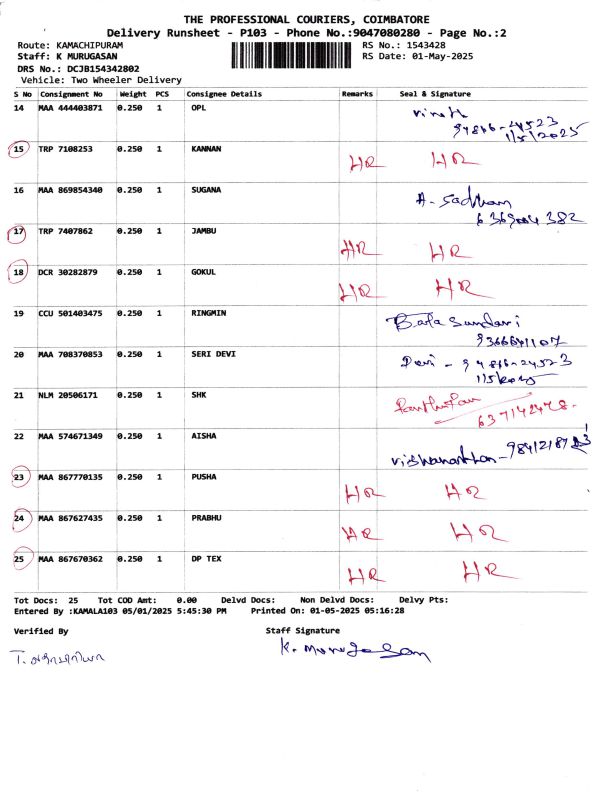 THE PROFESSIONAL COURIERS, COIMBATORE
Delivery Runsheet - P103 - Phone No.:9047080280 - Page No.:2
Route: KAMACHIPURAM RS No.: 1543428
Staff: K MURUGASAN RS Date: 01-May-2025
DRS No.: DCJB154342802
Vehicle: Two Wheeler Delivery
S No Consignment No Weight PCS Consignee Details Remarks Seal & Signature
14 MAA 444403871 0.250 1 OPL
94866-24523
1/5/2025
15 TRP 7108253 0.250 1 KANNAN HR HR
16 MAA 869854340 0.250 1 SUGANA A- Sadham
17 TRP 7407862 0.250 1 JAMBU HR HR
18 DCR 30282879 0.250 1 GOKUL HR HR
19 CCU 501403475 0.250 1 RINGMIN Bala Sundari
9366641107
20 MAA 708370853 0.250 1 SERI DEVI Devi - 94866-24523
21 NLM 20506171 0.250 1 SHK
22 MAA 574671349 0.250 1 AISHA
23 MAA 867770135 0.250 1 PUSHA HR HR
24 MAA 867627435 0.250 1 PRABHU HR HR
25 MAA 867670362 0.250 1 DP TEX HR HR
Tot Docs: 25 Tot COD Amt: 0.00 Delvd Docs: Non Delvd Docs: Delvy Pts:
Entered By :KAMALA103 05/01/2025 5:45:30 PM Printed On: 01-05-2025 05:16:28
Verified By Staff Signature
K. Murugesan